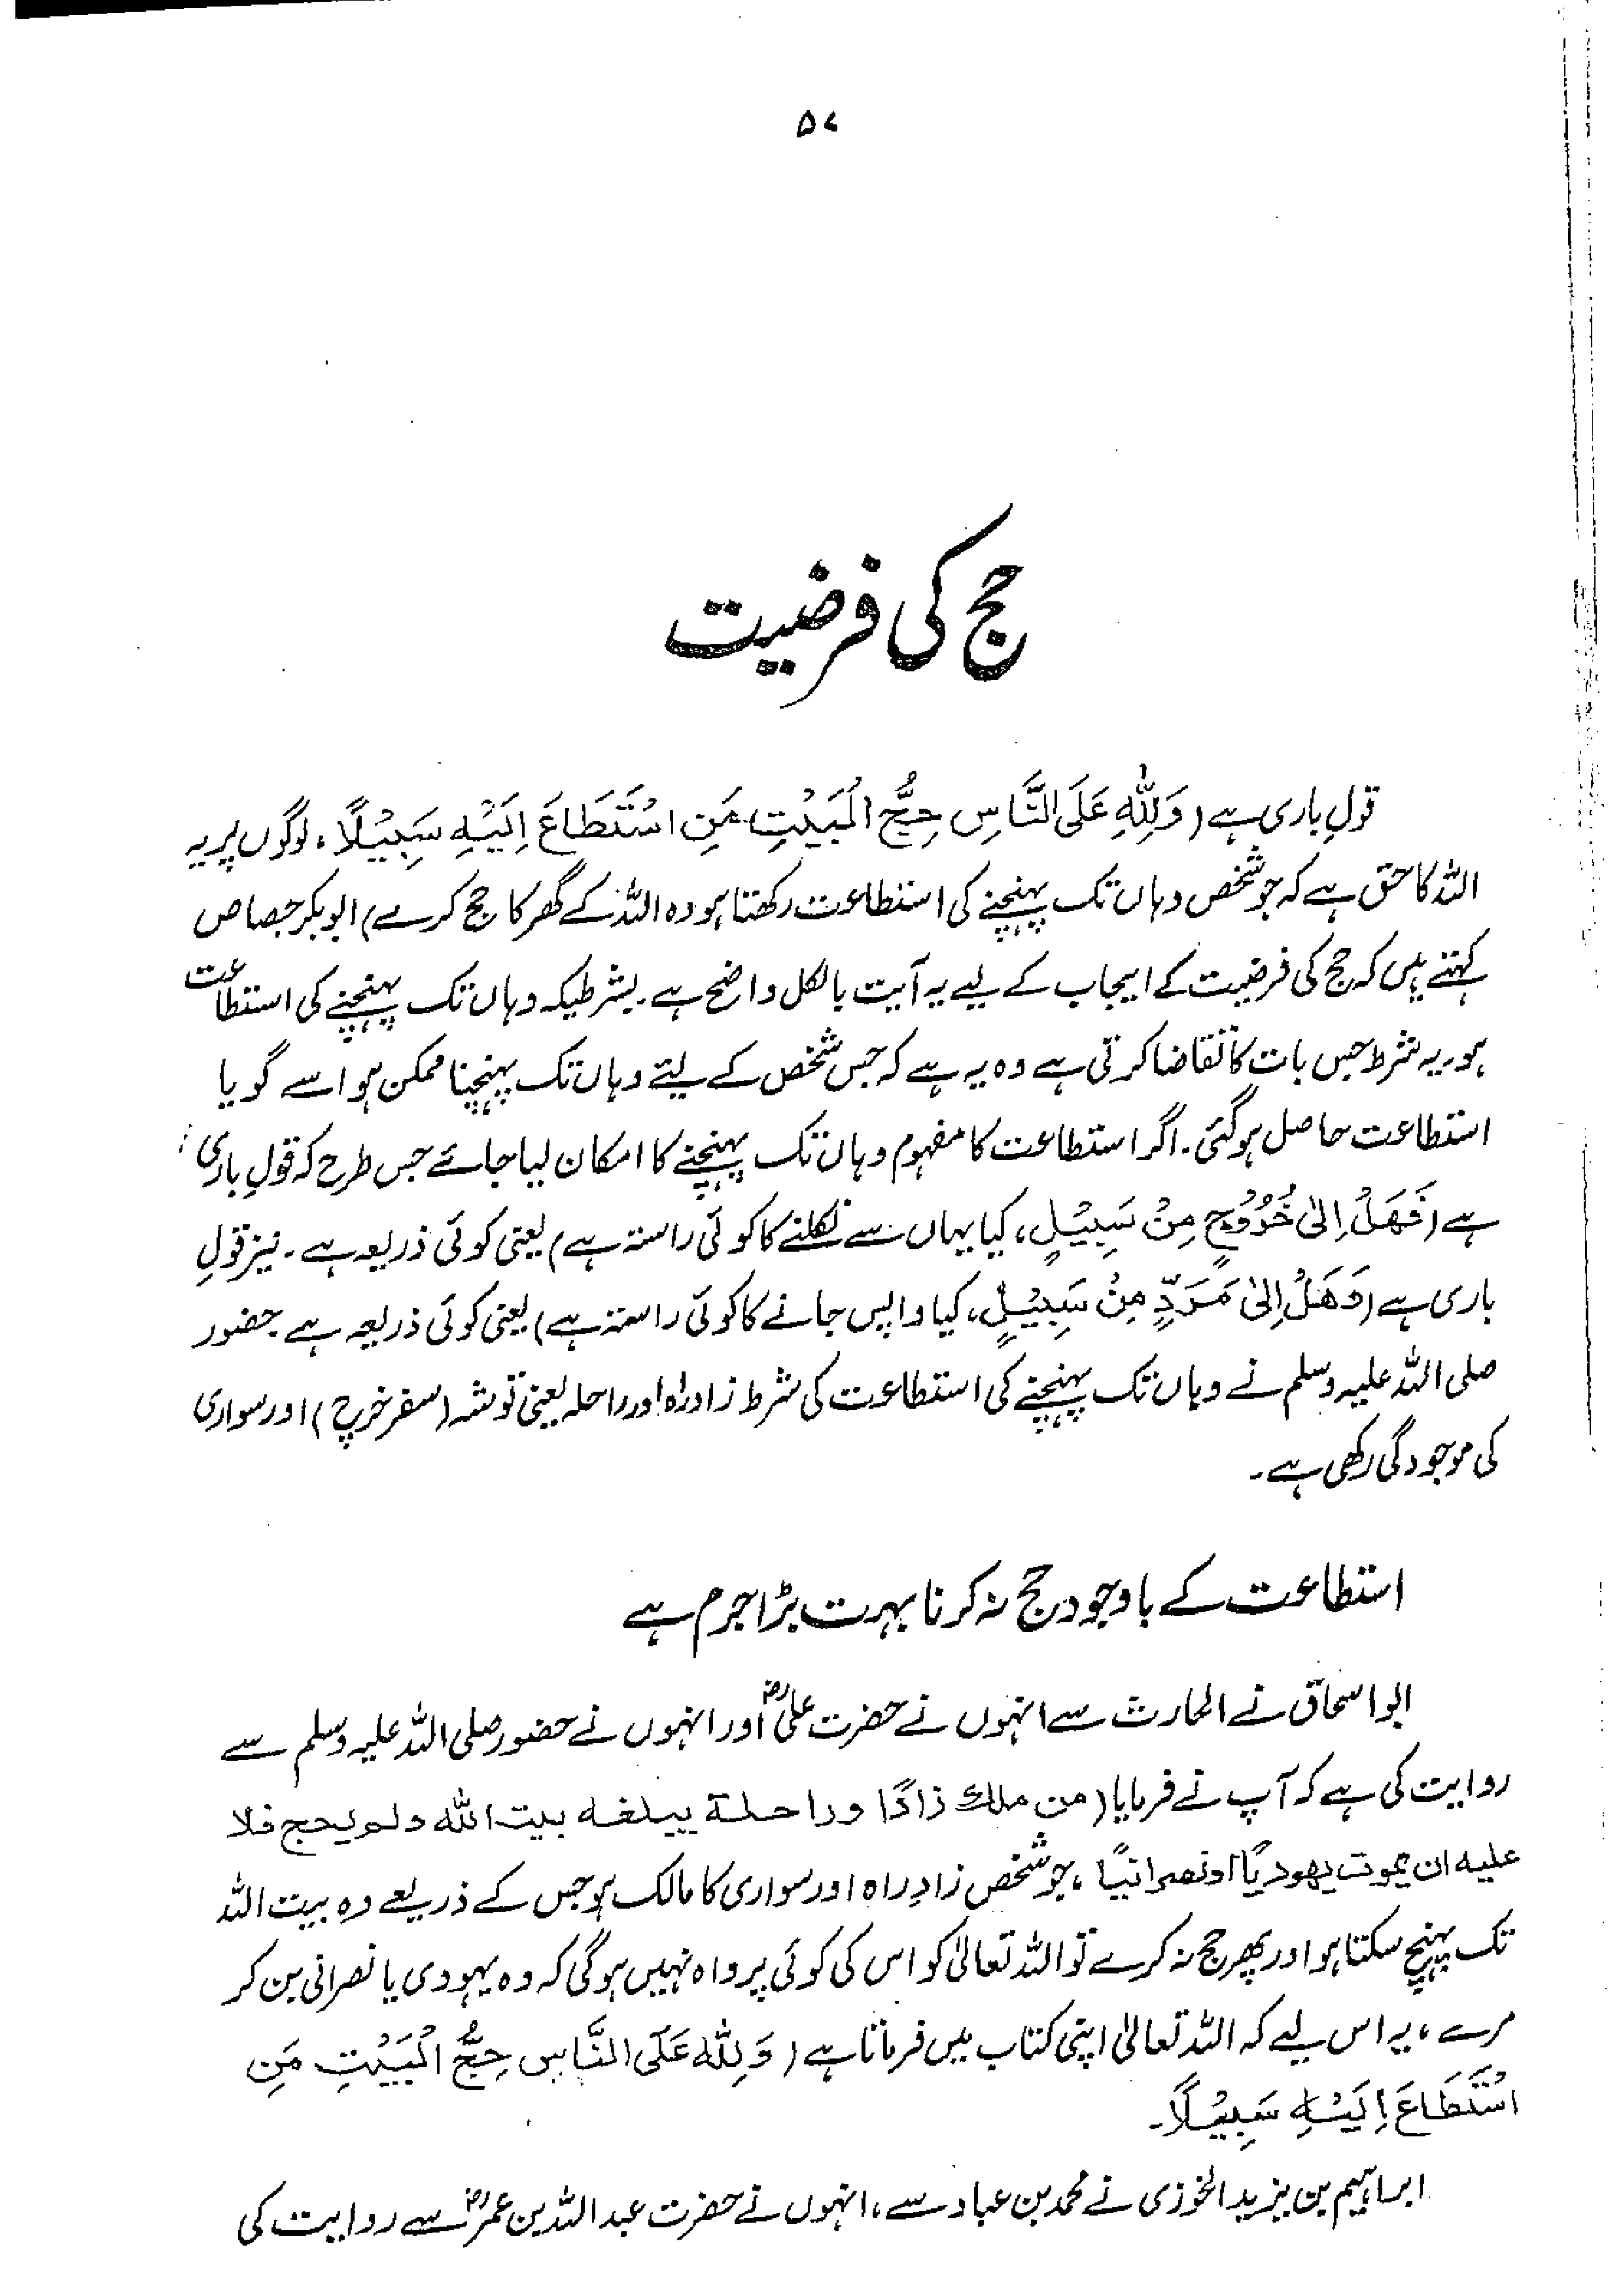 ۵۷
حج کی فرضیت
قولِ باری ہے (وَلِلّٰهِ عَلَى النَّاسِ حِجُّ الْبَيْتِ مَنِ اسْتَطَاعَ اِلَيْهِ سَبِيْلًا، لوگوں پر یہ
اللہ کا حق ہے کہ جو شخص وہاں تک پہنچنے کی استطاعت رکھتا ہو وہ اللہ کے گھر کا حج کرے) ابوبکر جصاص
کہتے ہیں کہ حج کی فرضیت کے ایجاب کے لیے یہ آیت بالکل واضح ہے۔ بشرطیکہ وہاں تک پہنچنے کی استطاعت
ہو۔ یہ شرط جس بات کا تقاضا کرتی ہے وہ یہ ہے کہ جس شخص کے لیئے وہاں تک پہنچنا ممکن ہو اسے گویا
استطاعت حاصل ہوگئی۔ اگر استطاعت کا مفہوم وہاں تک پہنچنے کا امکان لیا جائے جس طرح کہ قولِ باری
ہے (فَهَلْ اِلٰى خُرُوْجٍ مِنْ سَبِيْلٍ، کیا یہاں سے نکلنے کا کوئی راستہ ہے) یعنی کوئی ذریعہ ہے۔ نیز قولِ
باری ہے (وَهَلْ اِلٰى مَرَدٍّ مِنْ سَبِيْلٍ، کیا واپس جانے کا کوئی راستہ ہے) یعنی کوئی ذریعہ ہے۔ حضور
صلی اللہ علیہ وسلم نے وہاں تک پہنچنے کی استطاعت کی شرط زادراہ اور راحلہ یعنی توشہ (سفر خرچ) اور سواری
کی موجودگی رکھی ہے۔
استطاعت کے باوجود حج نہ کرنا بہت بڑا جرم ہے
ابو اسحاق نے الحارث سے انہوں نے حضرت علیؓ اور انہوں نے حضور صلی اللہ علیہ وسلم سے
روایت کی ہے کہ آپ نے فرمایا (من ملك زادًا وراحلة يبلغه بيت الله ولم يحج فلا
عليه ان يموت يهوديًا او نصرانيًا، جو شخص زادِ راہ اور سواری کا مالک ہو جس کے ذریعے وہ بیت اللہ
تک پہنچ سکتا ہو اور پھر حج نہ کرے تو اللہ تعالیٰ کو اس کی کوئی پرواہ نہیں ہوگی کہ وہ یہودی یا نصرانی بن کر
مرے، یہ اس لیے کہ اللہ تعالیٰ اپنی کتاب میں فرماتا ہے (وَلِلّٰهِ عَلَى النَّاسِ حِجُّ الْبَيْتِ مَنِ
اسْتَطَاعَ اِلَيْهِ سَبِيْلًا۔
ابراہیم بن یزید الخوزی نے محمد بن عباد سے، انہوں نے حضرت عبد اللہ بن عمرؓ سے روایت کی